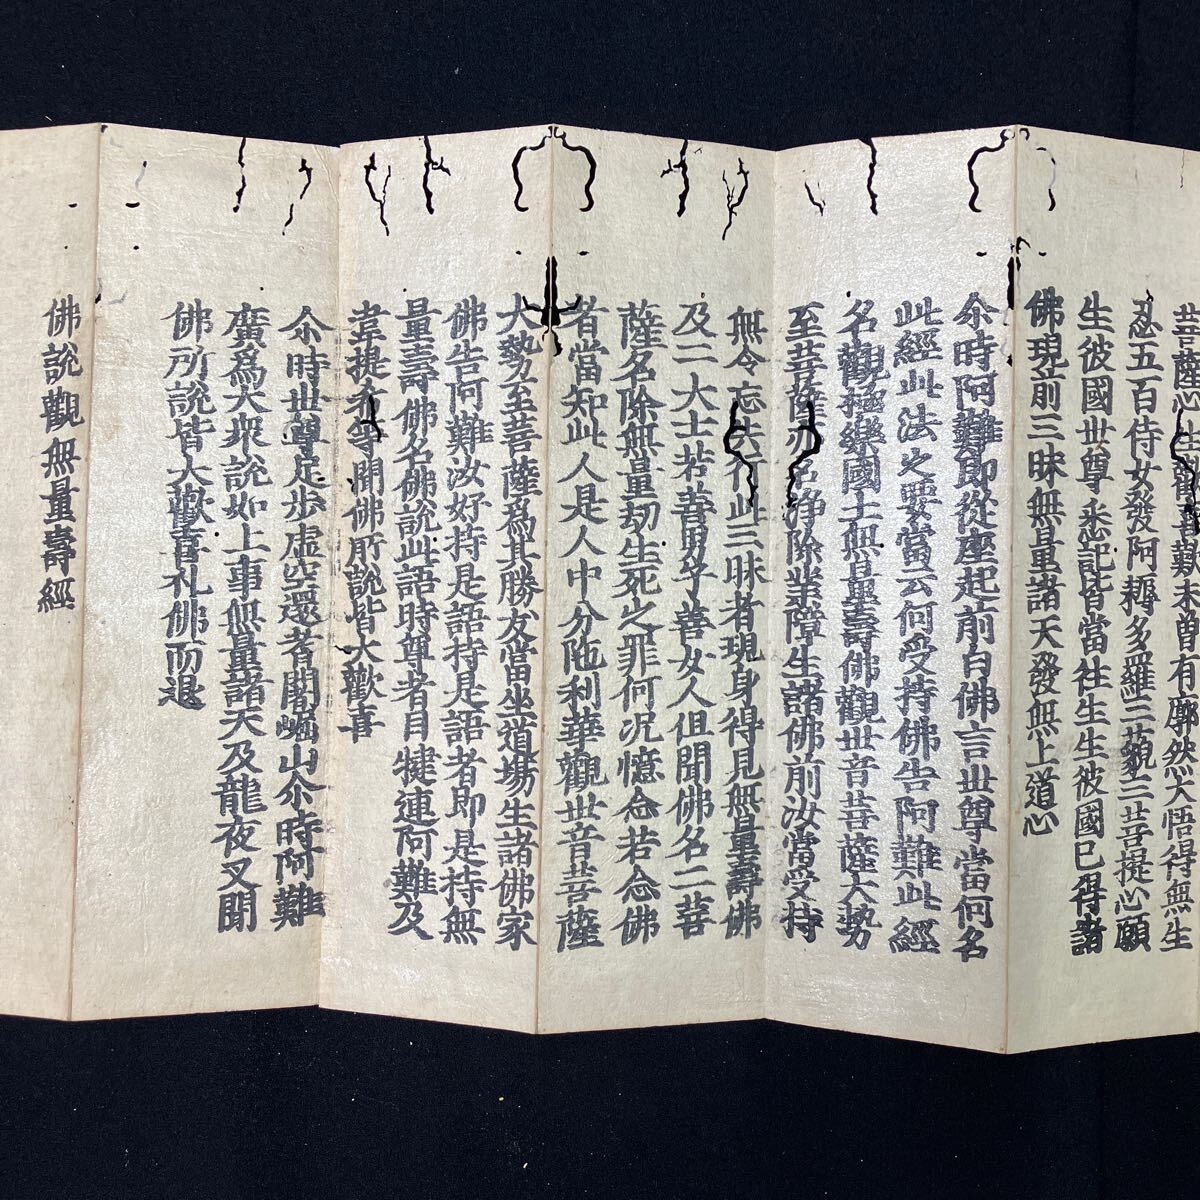 菩薩心生歡喜歎未曽有廓然大悟得無生
忍五百侍女發阿耨多羅三藐三菩提心願
生彼國世尊悉記皆當往生生彼國已得諸
佛現前三昧無量諸天發無上道心
尒時阿難即從座起前白佛言世尊當何名
此經此法之要當云何受持佛告阿難此經
名觀極樂國土無量壽佛觀世音菩薩大勢
至菩薩亦名淨除業障生諸佛前汝當受持
無令忘失行此三昧者現身得見無量壽佛
及二大士若善男子善女人但聞佛名二菩
薩名除無量劫生死之罪何況憶念若念佛
者當知此人是人中分陁利華觀世音菩薩
大勢至菩薩爲其勝友當坐道場生諸佛家
佛告阿難汝好持是語持是語者即是持無
量壽佛名佛說此語時尊者目犍連阿難及
韋提希等聞佛所說皆大歡喜
尒時世尊足步虛空還耆闍崛山尒時阿難
廣爲大衆說如上事無量諸天及龍夜叉聞
佛所說皆大歡喜礼佛而退
佛說觀無量壽經